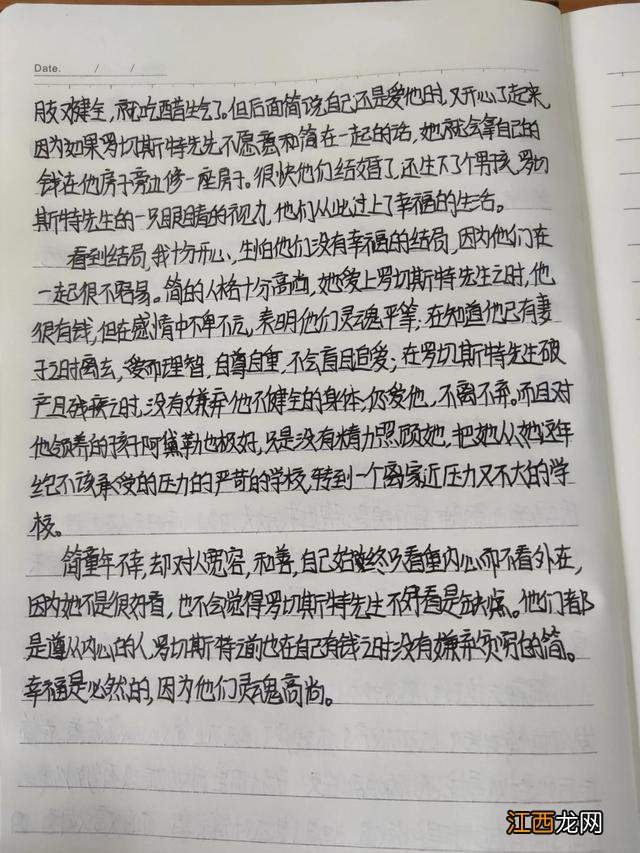 Date. / /
肢对健全,就吃醋生气了。但后面简说自己还是爱他时,又开心了起来,
因为如果罗切斯特先生不愿意和简在一起的话,她就会拿自己的
钱在他房子旁边修一座房子。很快他们结婚了,还生下了个男孩,罗切
斯特先生的一只眼睛的视力,他们从此过上了幸福的生活。
看到结局,我十分开心,生怕他们没有幸福的结局,因为他们在
一起很不容易。简的人格十分高尚,她爱上罗切斯特先生之时,他
很有钱,但在感情中不卑不亢,表明他们灵魂平等;在知道他已有妻
子之时离去,爱而理智,自尊自重,不会盲目追爱;在罗切斯特先生破
产且残疾之时,没有嫌弃他不健全的身体,仍爱他,不离不弃。而且对
他领养的孩子阿黛勒也极好,只是没有精力照顾她,把她从她这年
纪不该承受的压力的严苛的学校,转到一个离家近压力又不大的学
校。
简童年不幸,却对人宽容,和善,自己始终只看重内心而不看外在,
因为她不是很好看,也不会觉得罗切斯特先生不好看是缺点。他们都
是遵从内心的人,罗切斯特之前也在自己有钱之时没有嫌弃贫穷的简。
幸福是必然的,因为他们灵魂高尚。
江西龙网